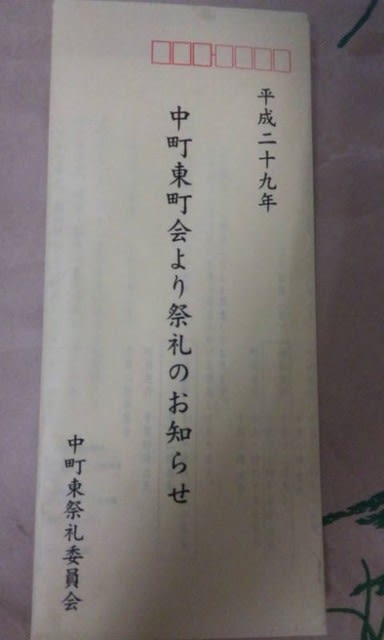 平成二十九年
中町東町会より祭礼のお知らせ
中町東祭礼委員会